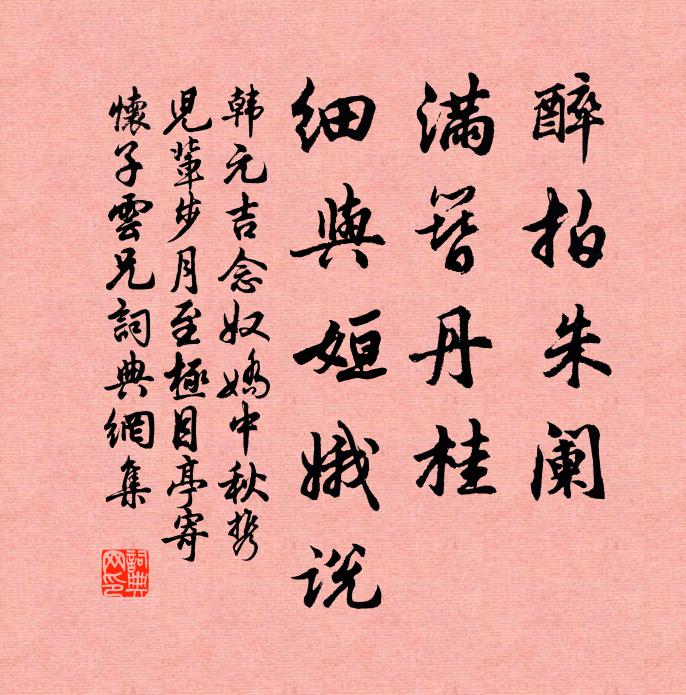 醉拍朱阑
满簪丹桂
细与姮娥说
韩元吉念奴娇中秋携
儿辈步月至极目亭寄
怀子云兄词典网集
词典
网印